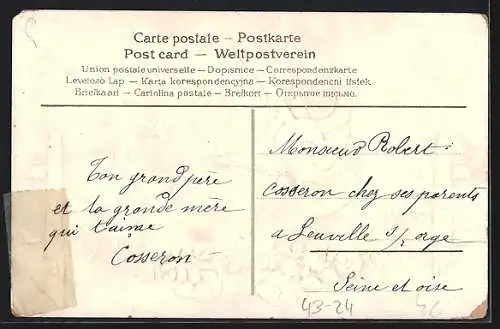 Carte postale — Postkarte
Post card — Weltpostverein
Union postale universelle — Dopisnice — Correspondenzkarte
Levelező Lap. — Karta korespondencyjna — Korespondenčni lístek
Briefkaart — Cartolina postale — Brefkort — Открытое письмо.
Ton grand père
et ta grande mère
qui t'aime
Cosseron
Monsieur Robert
Cosseron chez ses parents
a Leuville s/ orge
Seine et oise
43-24